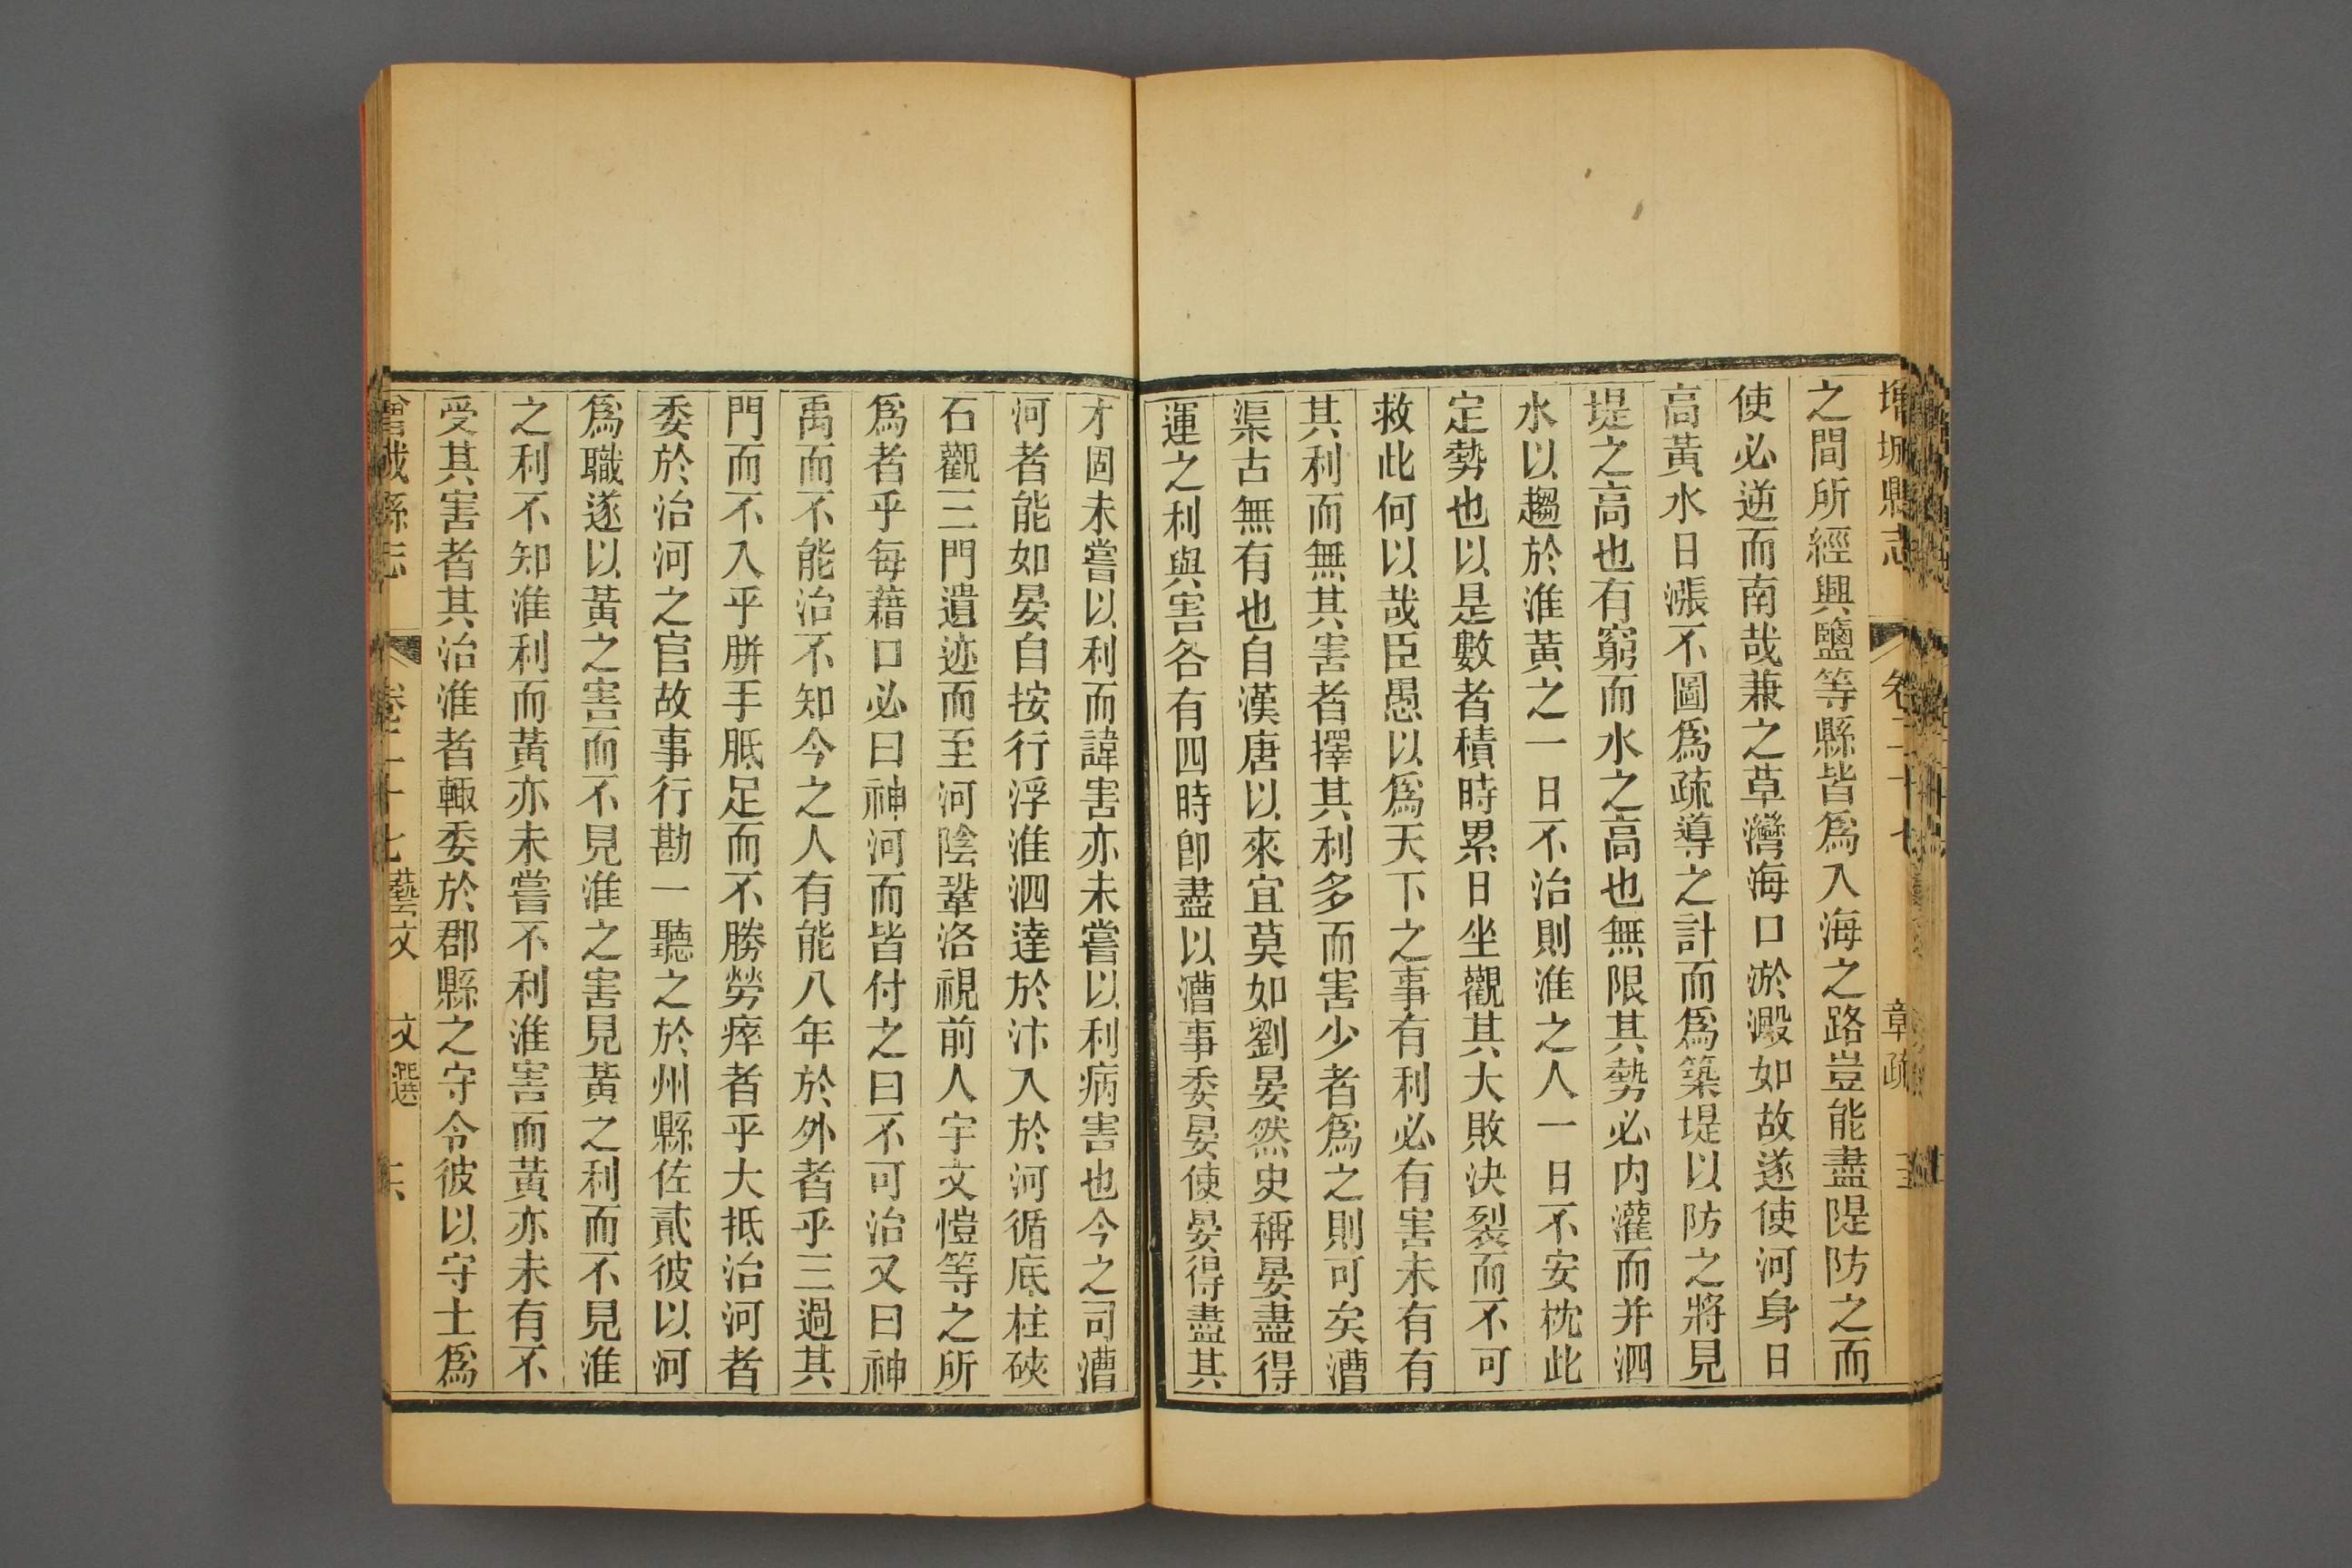 增城縣志 卷二十七 章疏 五
之間所經興鹽等縣皆爲入海之路豈能盡隄防之而
使必逆而南哉兼之草灣海口淤澱如故遂使河身日
高黃水日漲不圖爲疏導之計而爲築堤以防之將見
堤之高也有窮而水之高也無限其勢必内灌而并泗
水以趨於淮黃之一日不治則淮之人一日不安枕此
定勢也以是數者積時累日坐觀其大敗決裂而不可
救此何以哉臣愚以爲天下之事有利必有害未有有
其利而無其害者擇其利多而害少者爲之則可矣漕
渠古無有也自漢唐以來宜莫如劉晏然史稱晏盡得
運之利與害各有四時卽盡以漕事委晏使晏得盡其
才固未嘗以利而諱害亦未嘗以利病害也今之司漕
河者能如晏自按行浮淮泗達於汴入於河循底柱硤
石觀三門遺迹而至河陰鞏洛視前人宇文愷等之所
爲者乎每藉口必曰神河而皆付之曰不可治又曰神
禹而不能治不知今之人有能八年於外者乎三過其
門而不入乎胼手胝足而不勝勞瘁者乎大抵治河者
委於治河之官故事行勘一聽之於州縣佐貳彼以河
爲職遂以黃之害而不見淮之害見黃之利而不見淮
之利不知淮利而黃亦未嘗不利淮害而黃亦未有不
受其害者其治淮者輙委於郡縣之守令彼以守土爲
增城縣志 卷二十七 藝文 文選 六